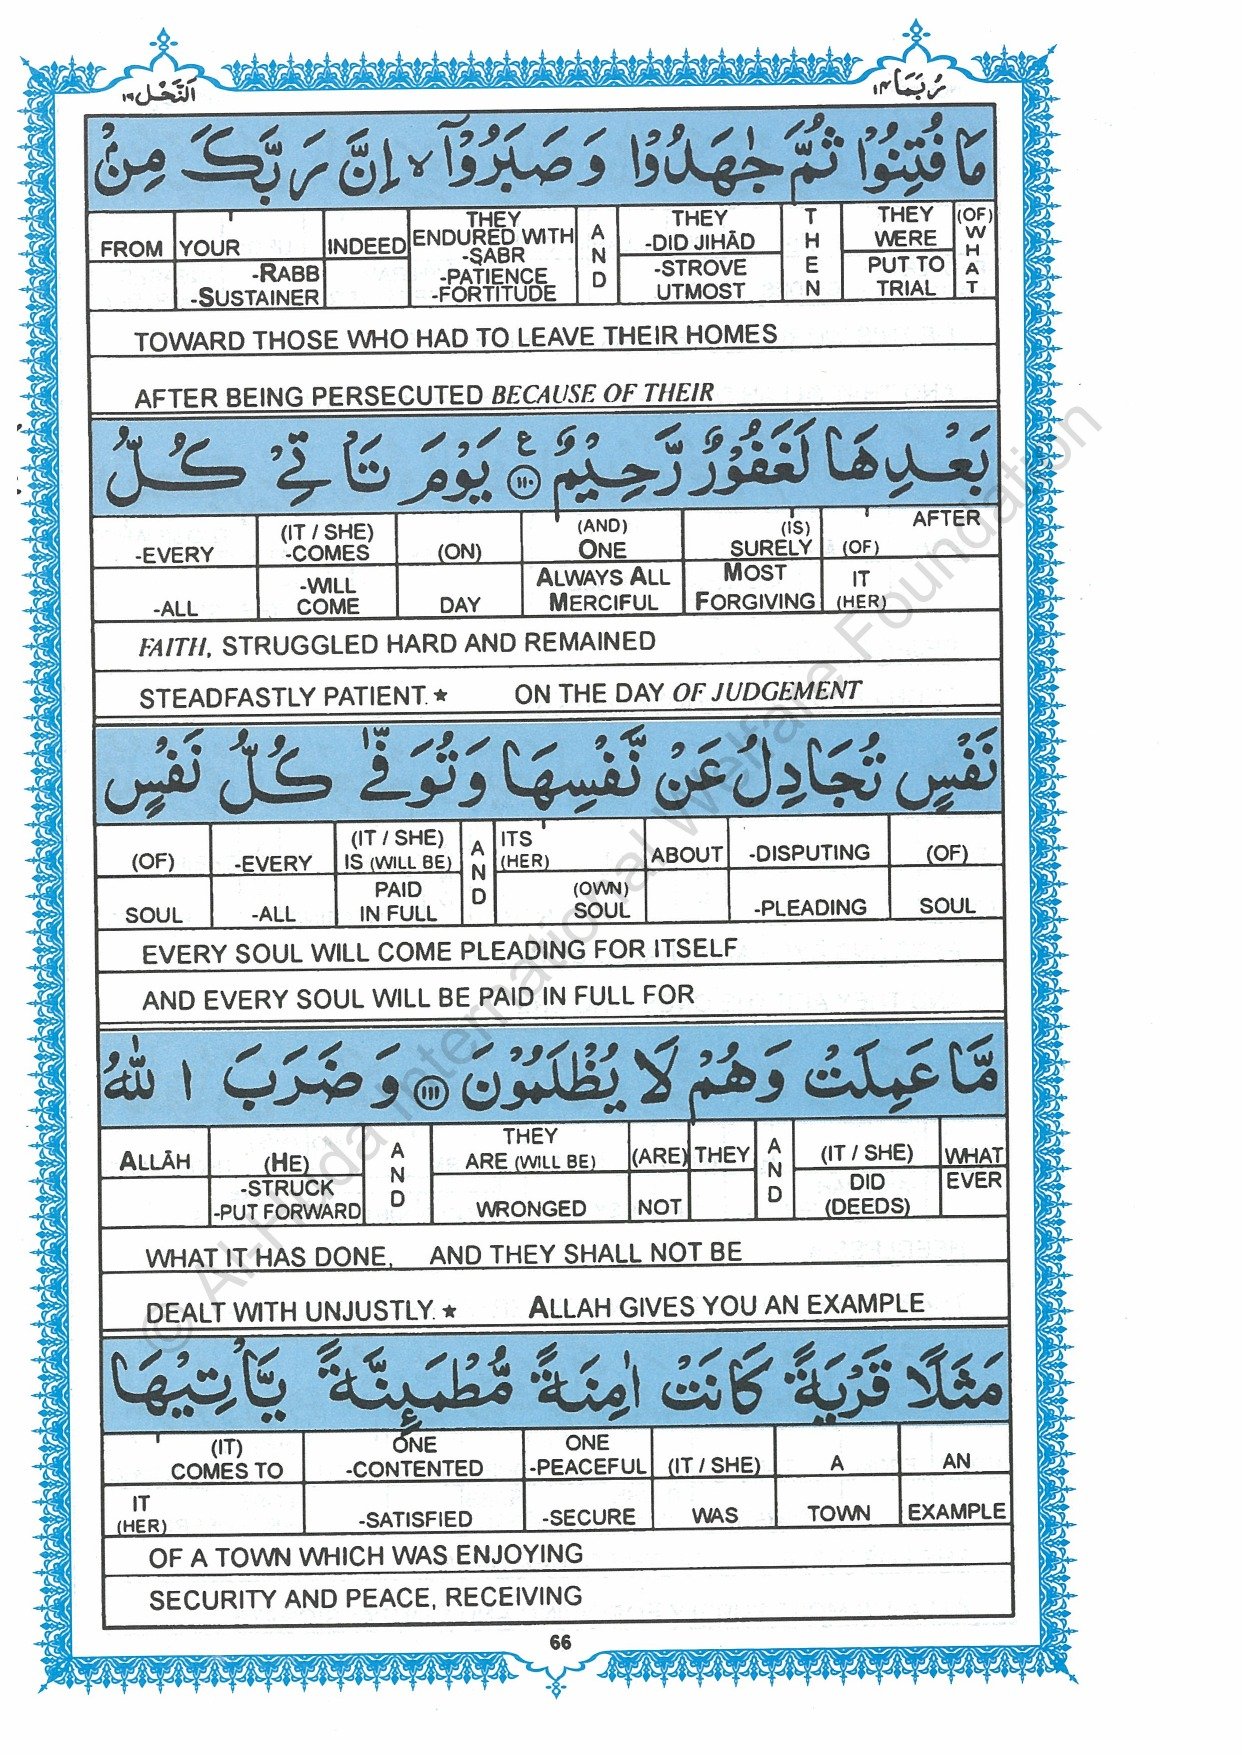 اَلنَّحْل ١٦
رُبَمَا ١٤
مَا فُتِنُوْا ثُمَّ جٰهَدُوْا وَ صَبَرُوْۤا ۙ اِنَّ رَبَّكَ مِنْۢ
FROM YOUR -RABB -SUSTAINER INDEED THEY ENDURED WITH -SABR -PATIENCE -FORTITUDE AND THEY -DID JIHĀD -STROVE UTMOST THEN THEY WERE PUT TO TRIAL (OF) WHAT
TOWARD THOSE WHO HAD TO LEAVE THEIR HOMES
AFTER BEING PERSECUTED BECAUSE OF THEIR
بَعْدِهَا لَغَفُوْرٌ رَّحِيْمٌ ۧ ١١٠ يَوْمَ تَاْتِيْ كُلُّ
-EVERY -ALL (IT / SHE) -COMES -WILL COME (ON) DAY (AND) ONE ALWAYS ALL MERCIFUL (IS) SURELY MOST FORGIVING AFTER (OF) IT (HER)
FAITH, STRUGGLED HARD AND REMAINED
STEADFASTLY PATIENT.★ ON THE DAY OF JUDGEMENT
نَفْسٍ تُجَادِلُ عَنْ نَّفْسِهَا وَ تُوَفّٰى كُلُّ نَفْسٍ
(OF) SOUL -EVERY -ALL (IT / SHE) IS (WILL BE) PAID IN FULL AND ITS (HER) (OWN) SOUL ABOUT -DISPUTING -PLEADING (OF) SOUL
EVERY SOUL WILL COME PLEADING FOR ITSELF
AND EVERY SOUL WILL BE PAID IN FULL FOR
مَّا عَمِلَتْ وَ هُمْ لَا يُظْلَمُوْنَ ١١١ وَ ضَرَبَ اللّٰهُ
ALLĀH (HE) -STRUCK -PUT FORWARD AND THEY ARE (WILL BE) WRONGED (ARE) NOT THEY AND (IT / SHE) DID (DEEDS) WHAT EVER
WHAT IT HAS DONE, AND THEY SHALL NOT BE
DEALT WITH UNJUSTLY.★ ALLAH GIVES YOU AN EXAMPLE
مَثَلًا قَرْيَةً كَانَتْ اٰمِنَةً مُّطْمَئِنَّةً يَّاْتِيْهَا
(IT) COMES TO IT (HER) ONE -CONTENTED -SATISFIED ONE -PEACEFUL -SECURE (IT / SHE) WAS A TOWN AN EXAMPLE
OF A TOWN WHICH WAS ENJOYING
SECURITY AND PEACE, RECEIVING
66
© Al-Huda International Welfare Foundation